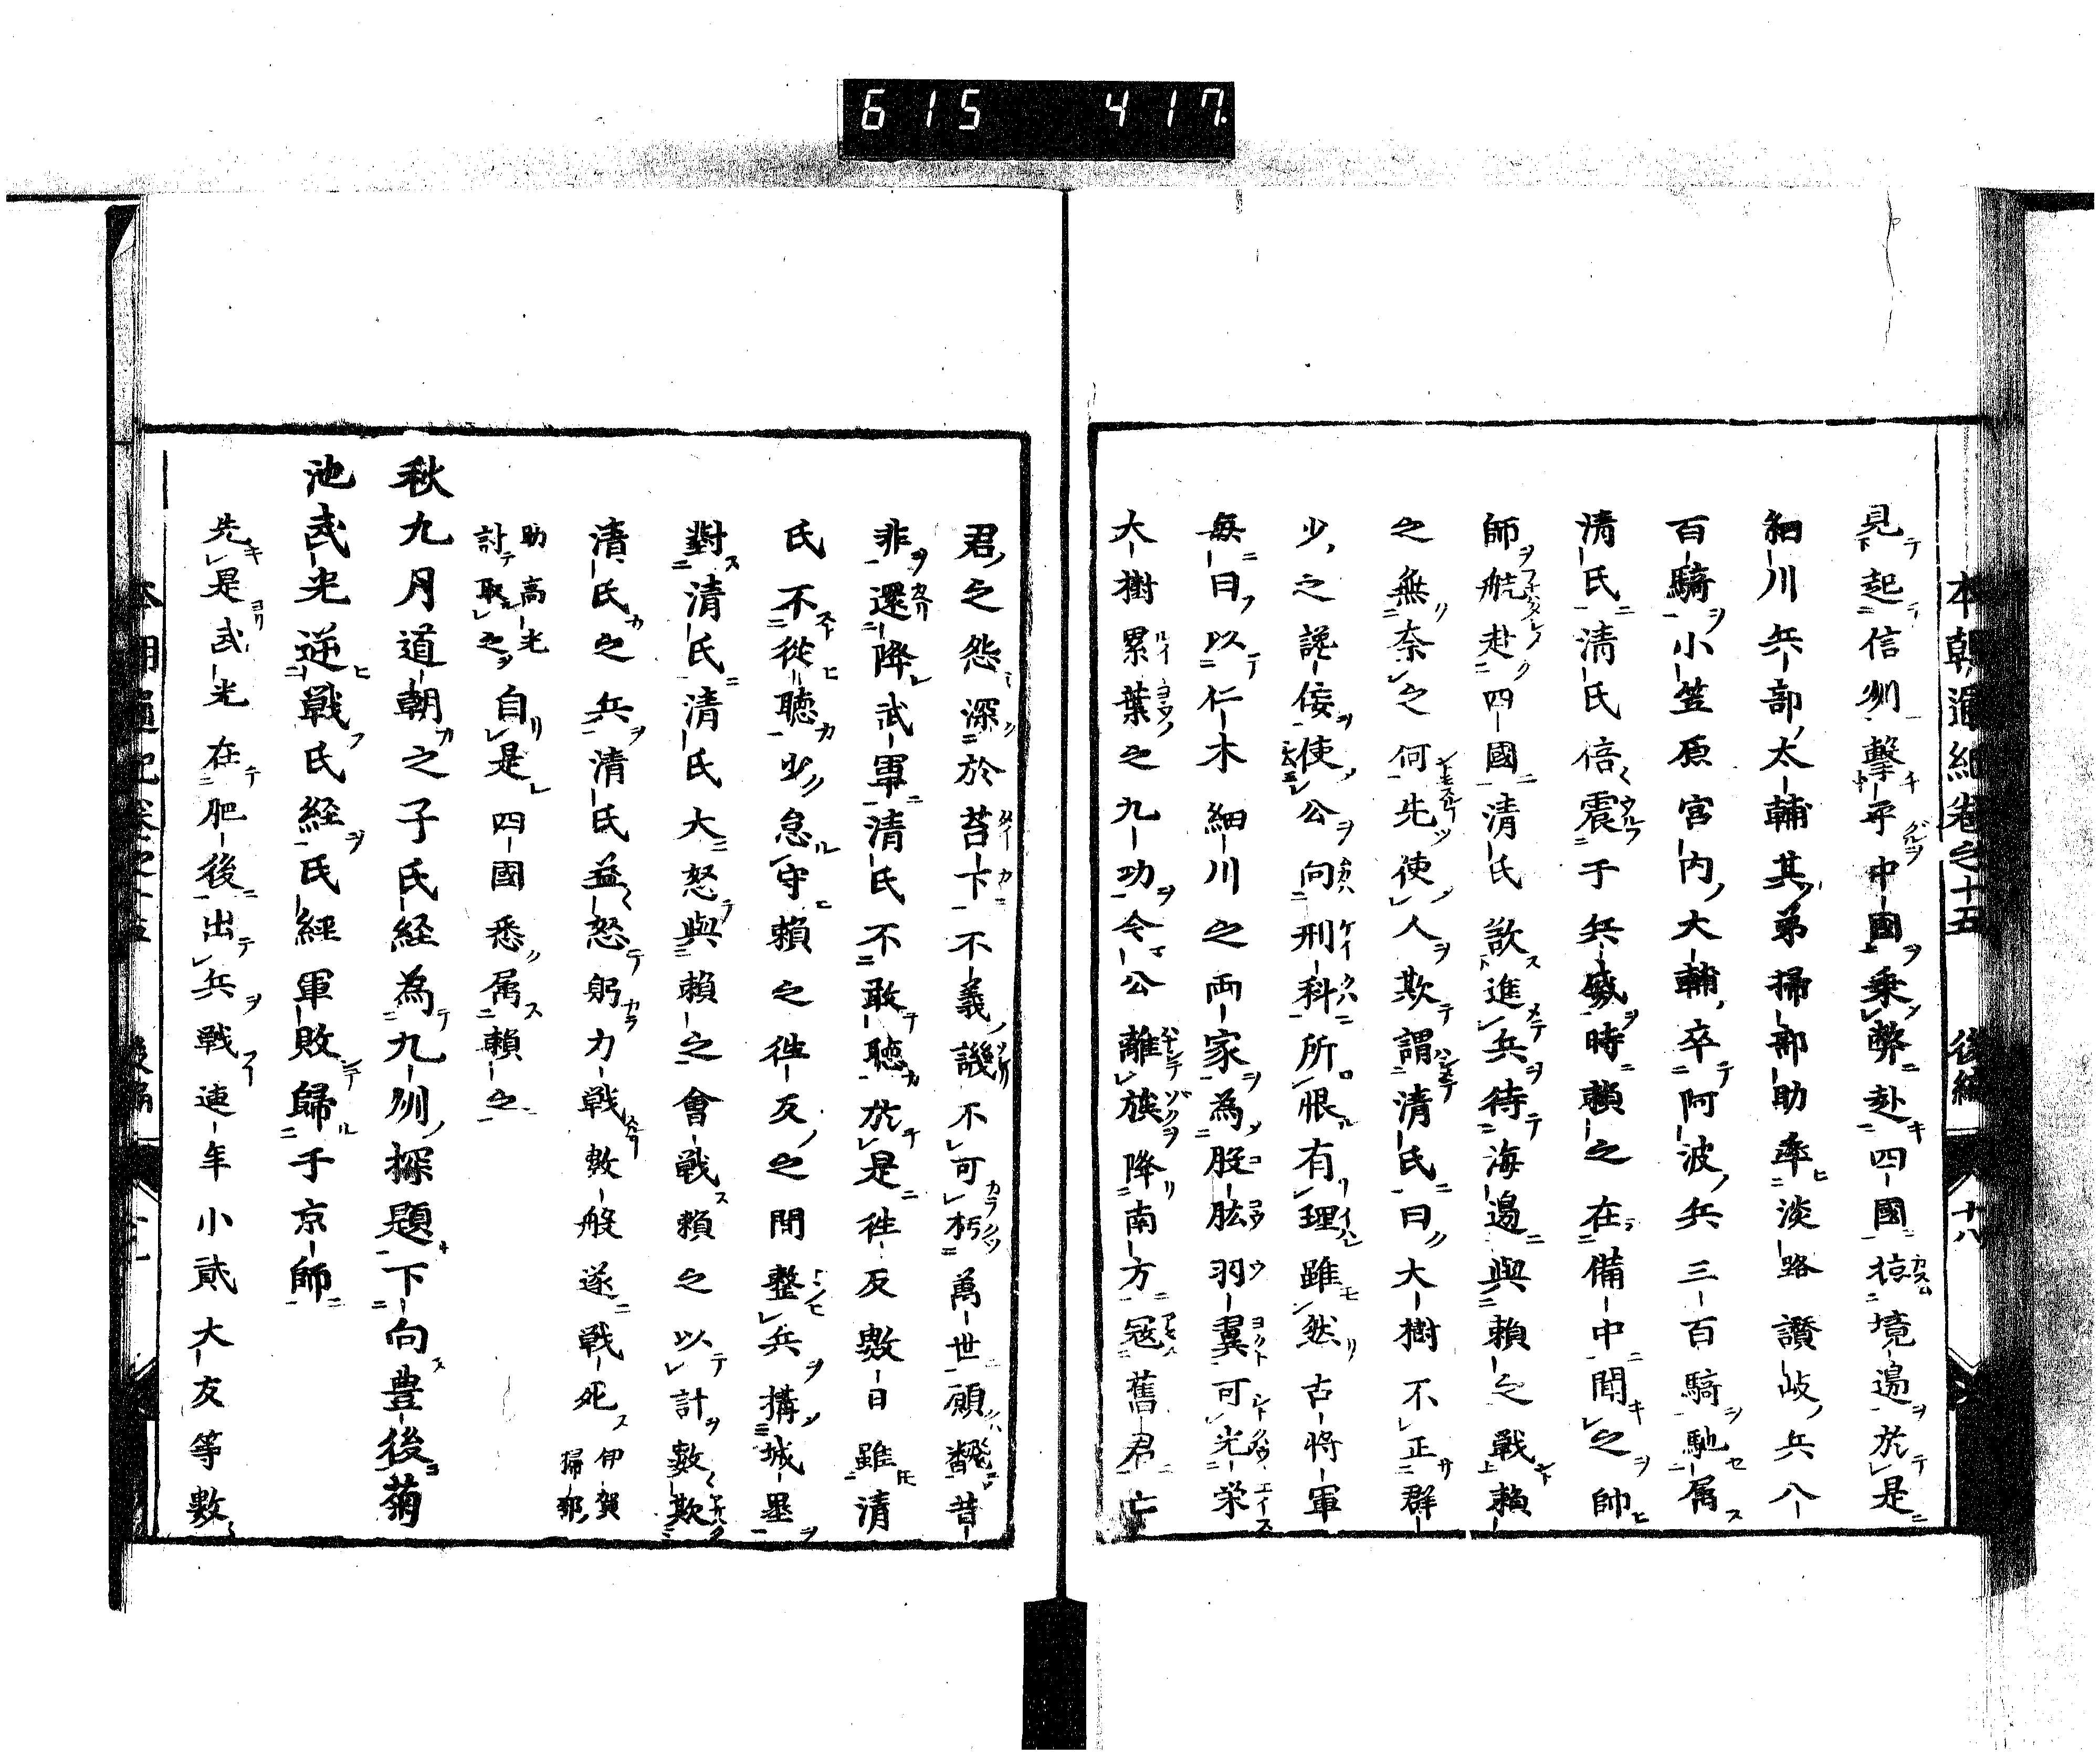 615 417.
本朝通紀卷之十五 後編 十八
見起信州擊平中國乗弊赴四國掠境邊於是
細川兵部太輔其弟掃部助率淡路讃岐兵八
百騎小笠原宮内大輔卒阿波兵三百騎馳属
清氏清氏倍震于兵威時頼之在備中聞之帥
師航赴四國清氏欲進兵待海邊與頼之戰頼
之無奈之何先使人欺謂清氏曰大樹不正群
少之讒佞使公向刑科所恨有理雖然古將軍
毎曰以仁木細川之両家為股肱羽翼可光栄
大樹累葉之九功令公離族降南方冦舊君亡
君之怨深於苔卞不義譏不可朽萬世願飜昔
非還降武軍清氏不敢聴於是徃反數日雖清
氏不從聴少怠守頼之徃反之間整兵搆城壘
對清氏清氏大怒與頼之會戰頼之以計數欺
清氏之兵清氏益怒躬力戰數般遂戰死 伊賀掃部
助高光計取之 自是四國悉属頼之
秋九月道朝之子氏経為九州探題下向豊後菊
池武光逆戰氏経氏経軍敗歸于京師
先是武光在肥後出兵戰連年小貳大友等數